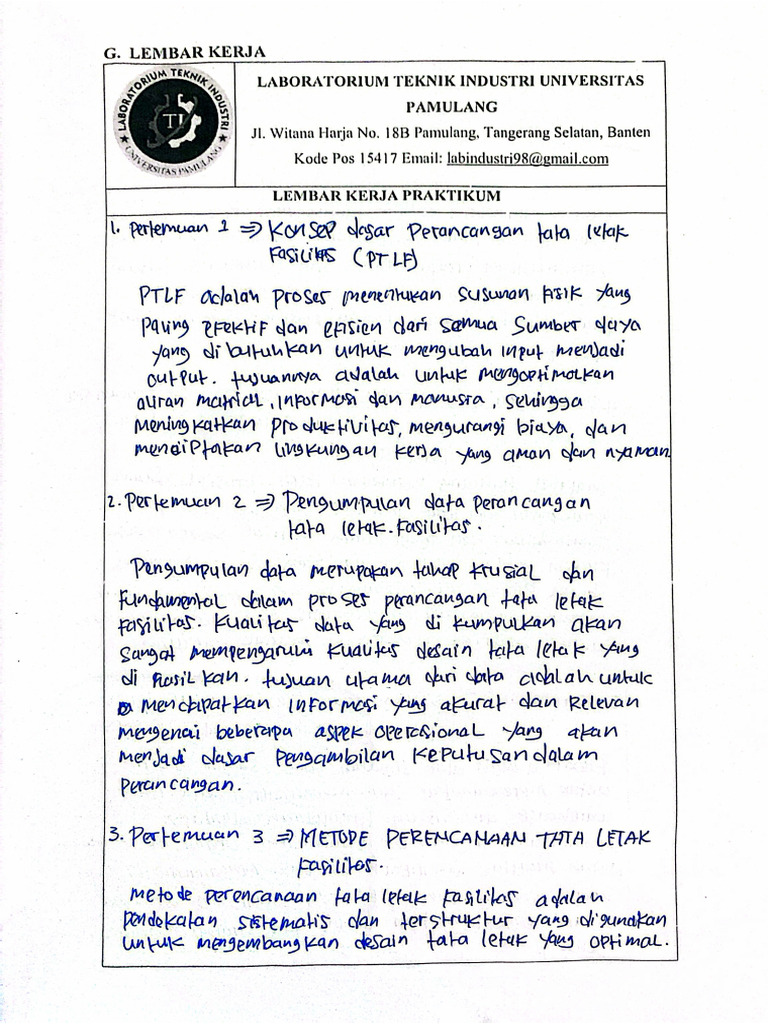 G. LEMBAR KERJA
LABORATORIUM TEKNIK INDUSTRI
TI
UNIVERSITAS PAMULANG
LABORATORIUM TEKNIK INDUSTRI UNIVERSITAS
PAMULANG
Jl. Witana Harja No. 18B Pamulang, Tangerang Selatan, Banten
Kode Pos 15417 Email: labindustri98@gmail.com
LEMBAR KERJA PRAKTIKUM
1. Pertemuan 1 => Konsep dasar Perancangan tata letak
Fasilitas (PTLF)
PTLF adalah proses menentukan susunan fisik yang
paling efektif dan efisien dari semua sumber daya
yang dibutuhkan untuk mengubah input menjadi
output. tujuannya adalah untuk mengoptimalkan
aliran matrial, informasi dan manusia, sehingga
meningkatkan produktivitas, mengurangi biaya, dan
menciptakan lingkungan kerja yang aman dan nyaman
2. Pertemuan 2 => Pengumpulan data perancangan
tata letak fasilitas.
Pengumpulan data merupakan tahap krusial dan
fundamental dalam proses perancangan tata letak
fasilitas. Kualitas data yang di kumpulkan akan
sangat mempengaruhi kualitas desain tata letak yang
di hasilkan. tujuan utama dari data adalah untuk
mendapatkan informasi yang akurat dan relevan
mengenai beberapa aspek operasional yang akan
menjadi dasar pengambilan keputusan dalam
perancangan.
3. Pertemuan 3 => METODE PERENCANAAN TATA LETAK
Fasilitas.
metode perencanaan tata letak fasilitas adalah
pendekatan sistematis dan terstruktur yang digunakan
untuk mengembangkan desain tata letak yang optimal.